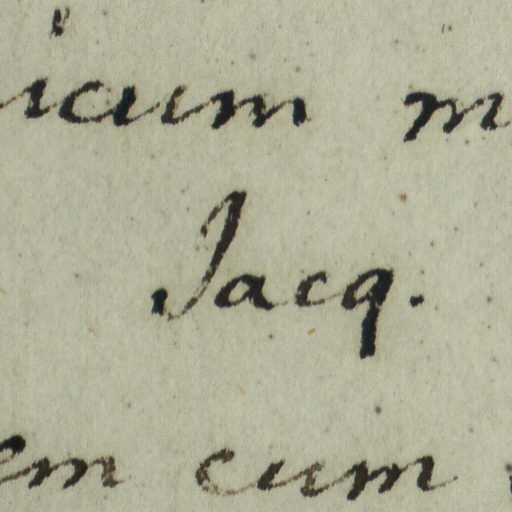 icum m
Jacq.
em cum